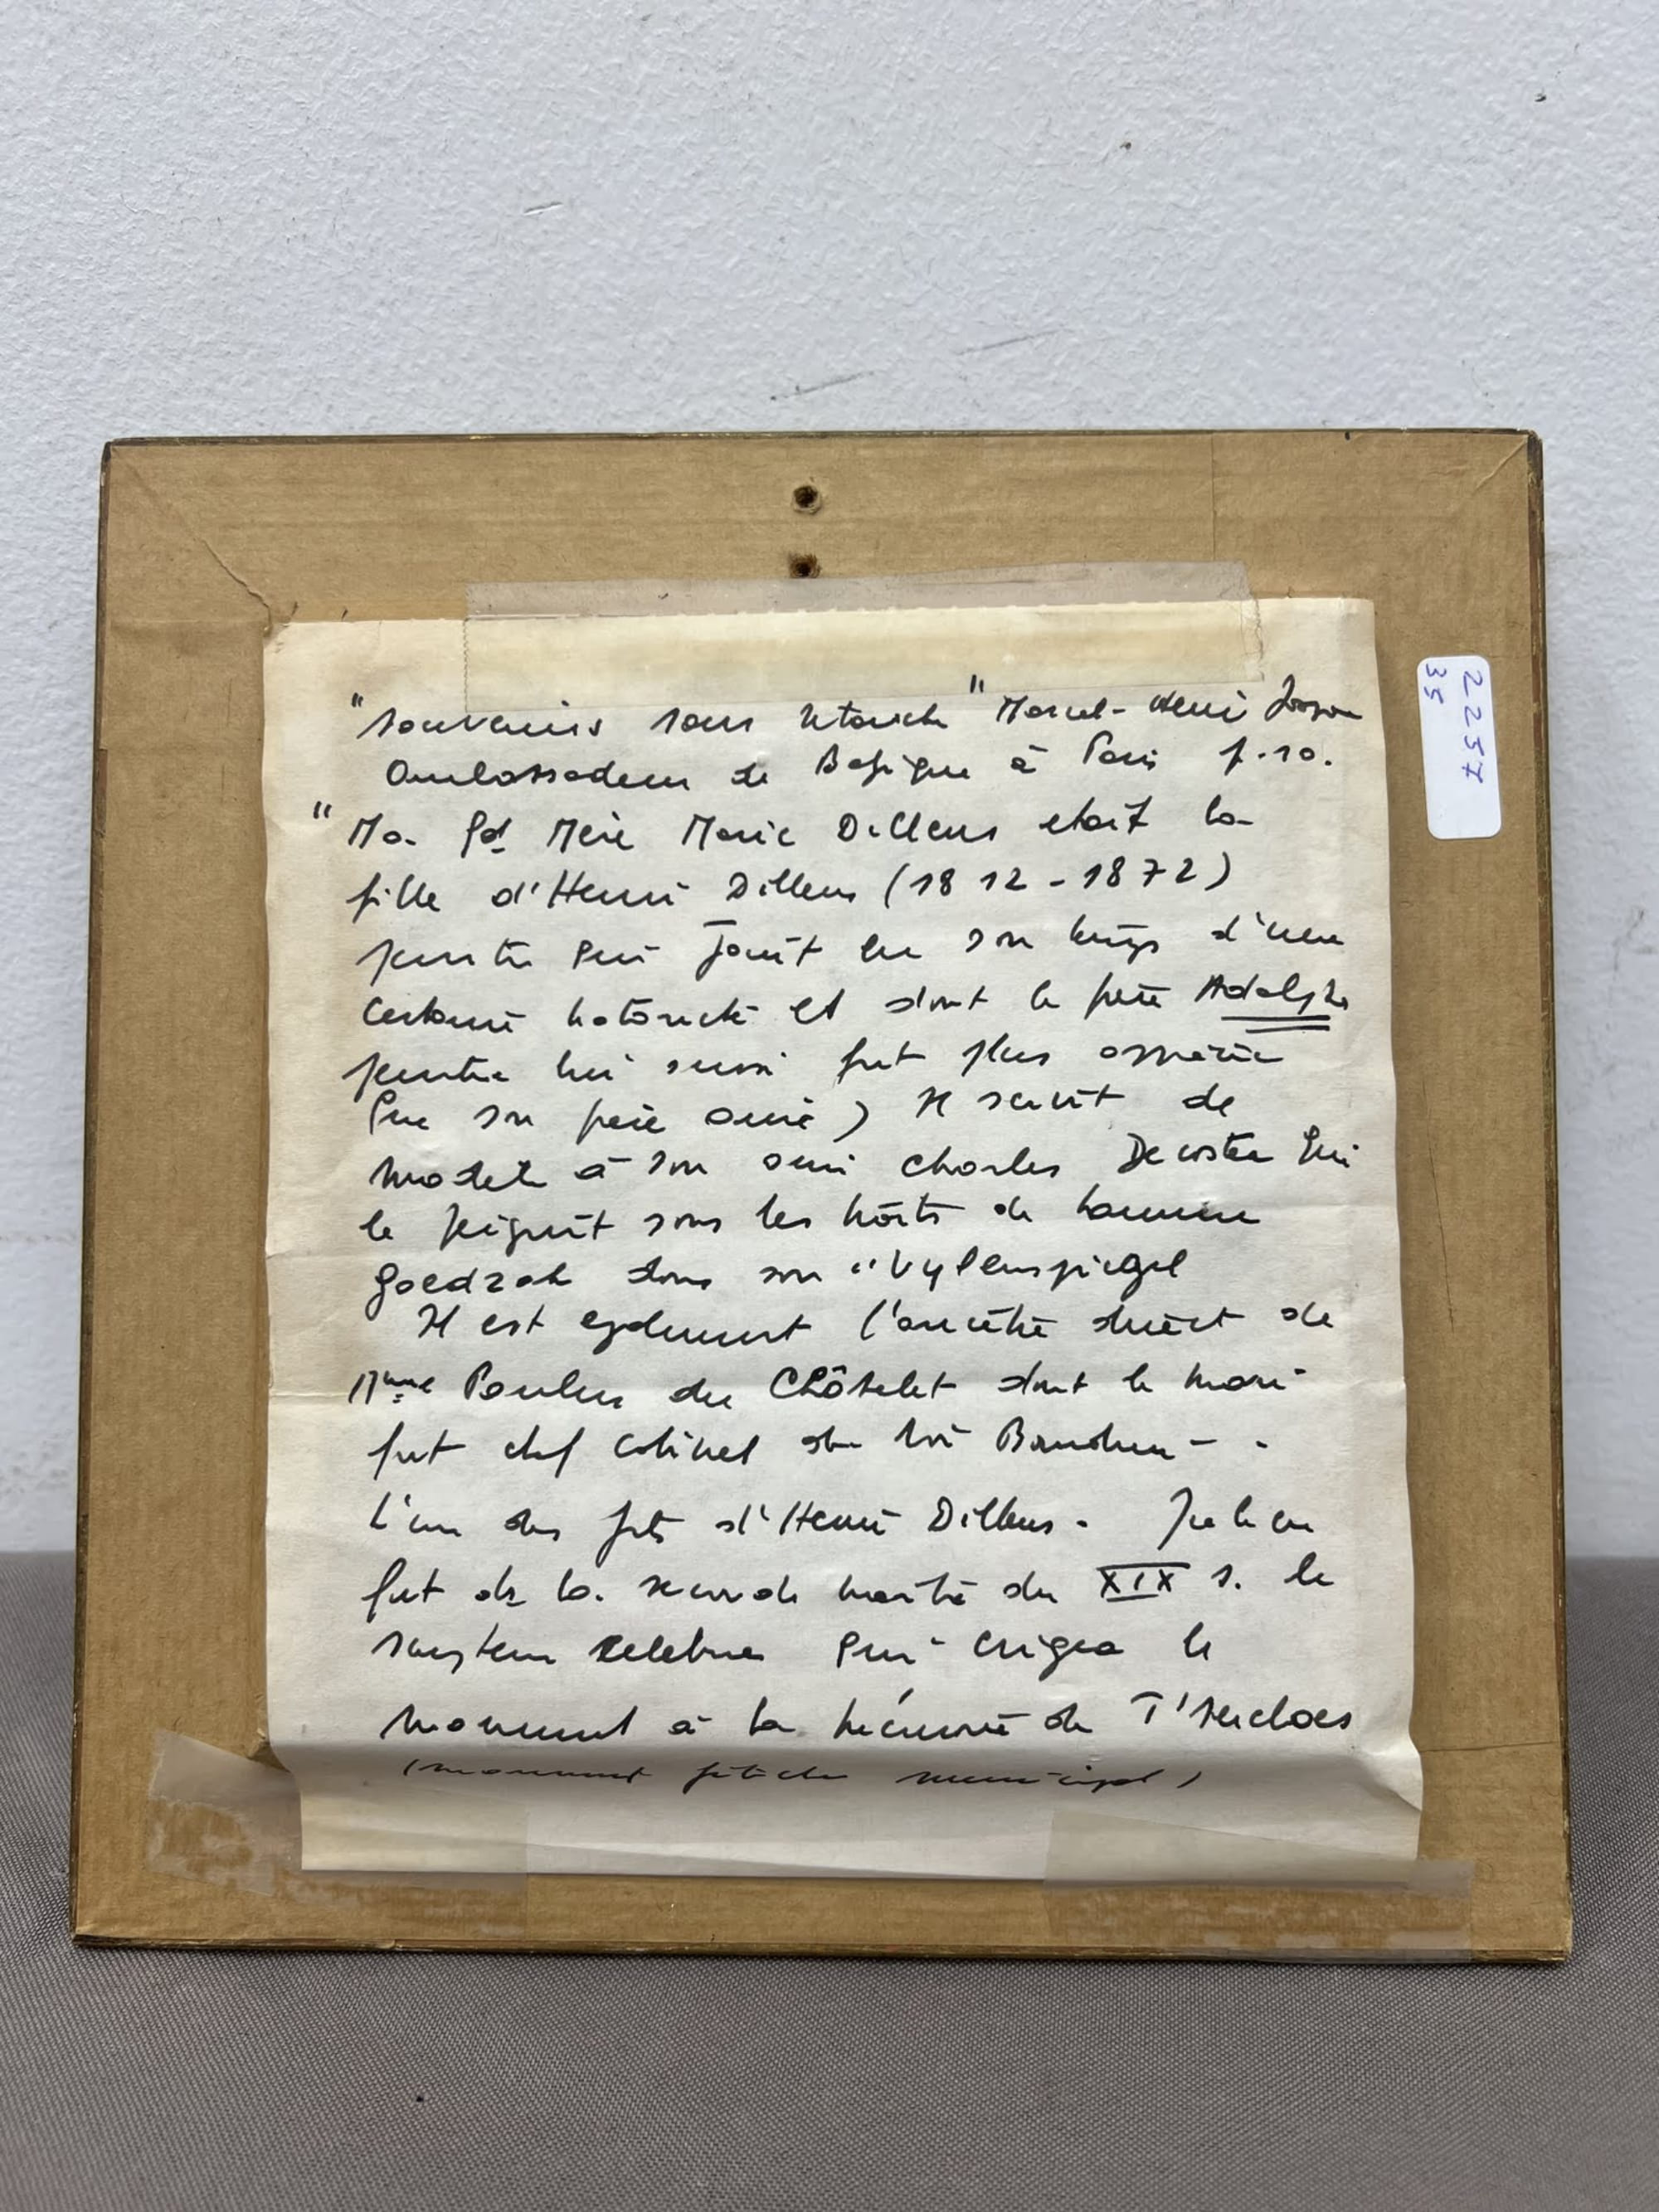 "Souvenirs sans retouche" Marcel-Henri Jaspar
Ambassadeur de Belgique à Paris p.10.
"Ma Gd Mère Marie Dillens etait la
fille d'Henri Dillens (1812-1872)
peintre qui jouit en son temps d'une
certaine notoriété et dont le frère Adolphe
peintre lui aussi fut plus apprécié
que son frère ainé) Il servit de
modele à son ami Charles Decoster qui
le peignit sous les traits de Lamme
Goedzak dans son "Uylenspiegel
Il est egalement l'ancêtre direct de
Mme Poulus du Châtelet dont le mari
fut chef cabinet du roi Baudouin - -
L'un des fils d'Henri Dillens - Julien
fut de la seconde moitié du XIX s. le
sculpteur celebre qui erigea le
monument à la mémoire de T'Serclaes
(monument fétiche municipal)
22257
35